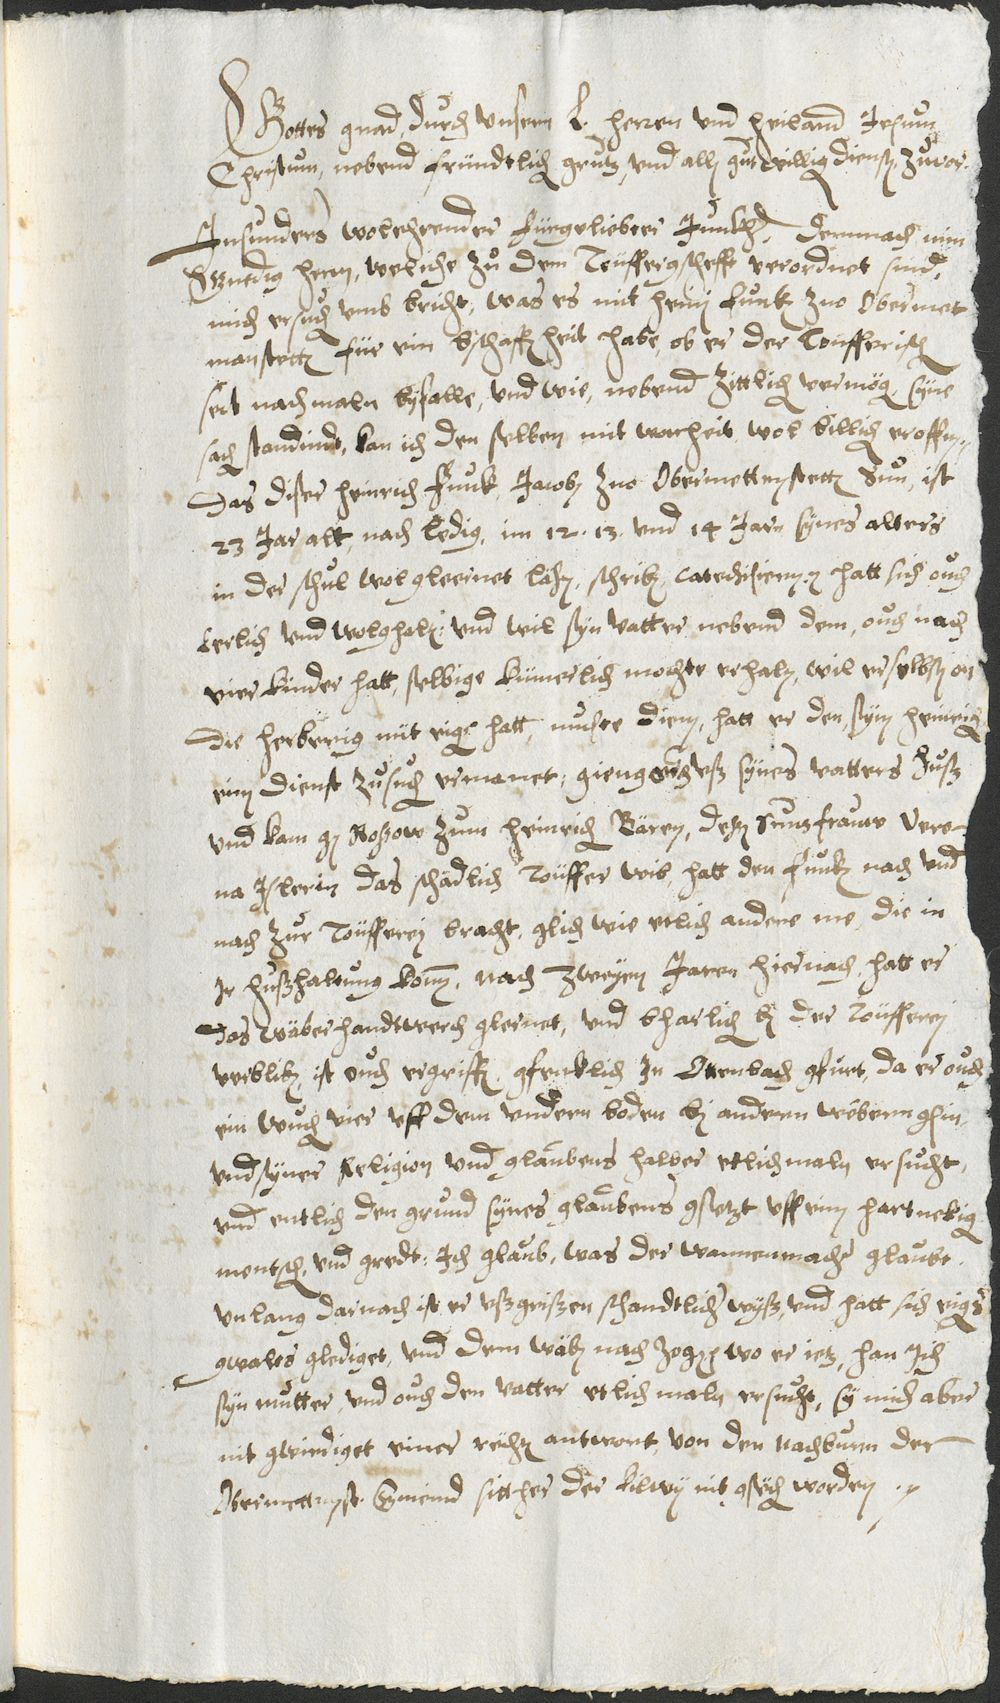 Gottes gnad, durch unsern L. herren und heiland Jesum
Christum, nebend fründtlich gruß, und all gut willig dienst zuvor.
Insunders wolehrender fürgeliebter Junkh. demnach min
gnedig herren, weliche zu dem Töuffergscheft verordnet sind,
mich ersucht umb bricht, was es mit heini Funk zuo Obermet
manstett für ein bschaffheit habe, ob er der Töufferisch
sect nachmaln byfalle, und wie, nebend Zittlich vermög, syne
sach standind, kan ich den selben mit warheit wol billich eroffn,
Das diser heinrich Funk, Jacobs zuo Obermettmstett Sun, ist
23 Jar alt, noch ledig, im 12. 13. und 14 Jarn synes alters
in der schul wol gleernet läsen, schriben, catechisieren, hatt sich ouch
eerlich und wolghalten: und wil syn vatter nebend dem, ouch noch
vier kinder hatt, selbige kumerlich mochte erhalten, wil er selbst on
die herberig nüt eigen hatt, muste dienen, hatt er den synen heinrich
ein dienst zusuchen ermanet, gieng uß synes vatters huß
und kam gen Roßow zum heinrich Bären, deßen Sunsfrauw Vere-
na Islerin das schädlich Töuffer wib, hatt den Funken nach und
nach zur Töufferey bracht, glich wie etlich andere me, die in
Ir hußhaltung komen, nach zweyen Jaren hiernach, hatt er
das wäber handtwerch glernet, und bharlich by der Töufferey
verbliben, ist ouch ergriffen gfenklich In Ottenbach gfürt, da er ouch
ein wuchen vier uff dem undern boden by andern wäbern gsin,
und syner Religion und glaubens halber etlichmaln ersucht,
und entlich den grund synes glaubens gsetzt uff einen hartnekigen
mentschen, und gredt: Ich glaub, was der wannenmacher glaubt.
unlang darnach ist er ußgrißen schandtlicher wyß, und hatt sich eigens
gwalts glediget, und dem wäben nach zogen, wo er ietz, han Ich
syn mutter, und ouch den vatter etlich maln ersucht, sy mich aber
nit gwirdiget einer rächten antwort, von den nachburen der
Obermettmst. Gmeind sitther der kilwy nit gsehen worden.